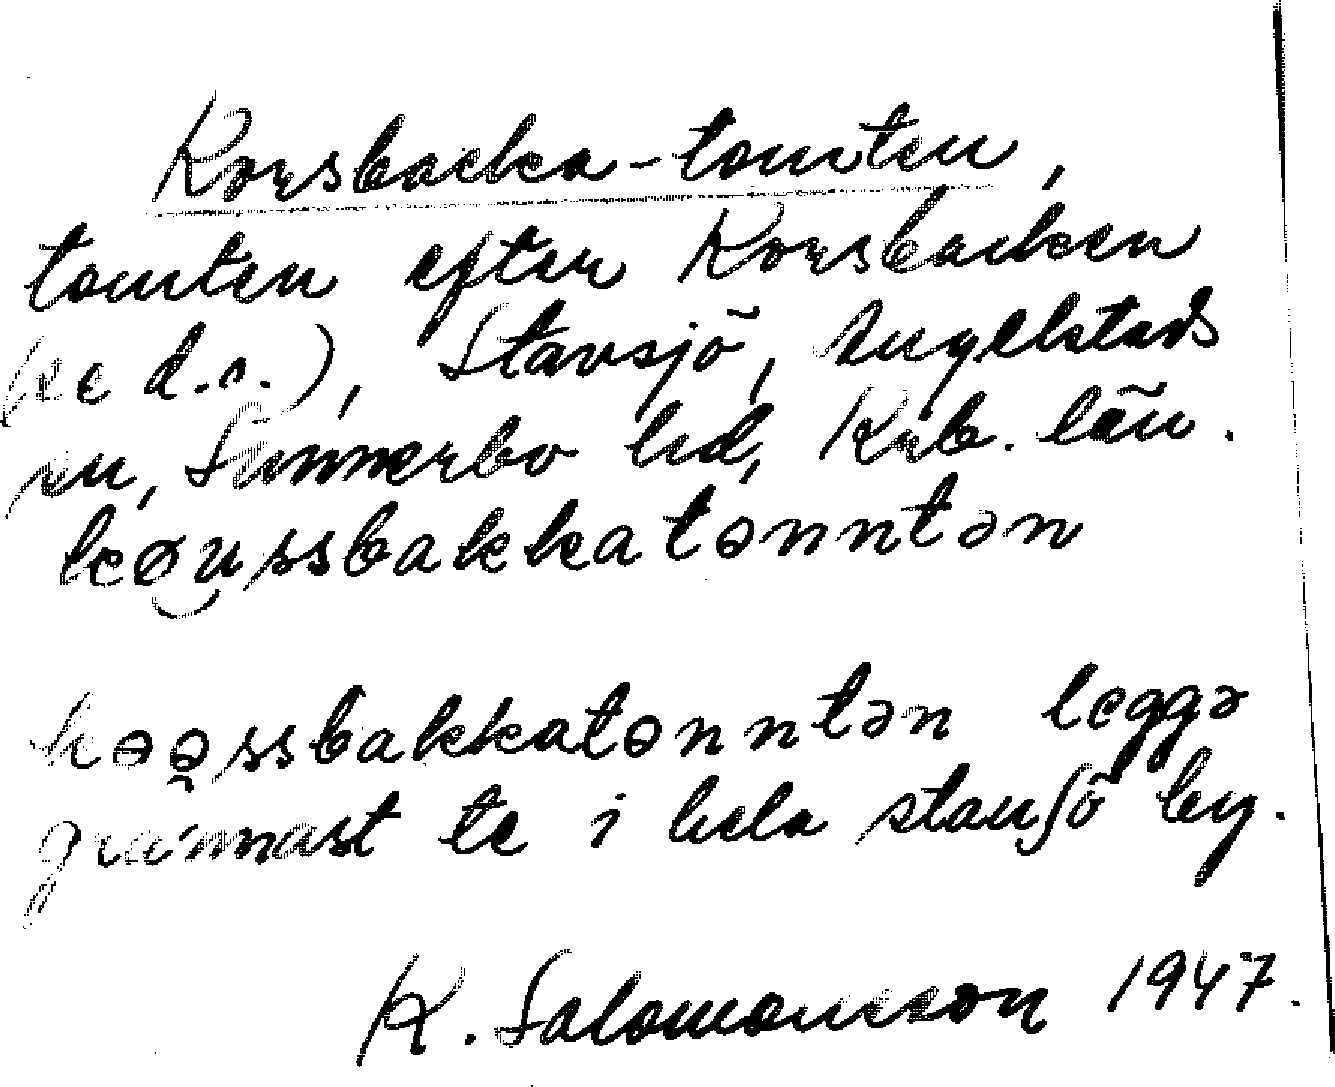 Korsbacka-tomten,
tomten efter Korsbacken
(se d.o.), Stavsjö, Angelstads
sn, Sunnerbo hd, Krb. län.
køussbakkatənntən
køossbakkatənntən leggə
grannast te i hela stauſö by.
K. Salomonsson 1947.